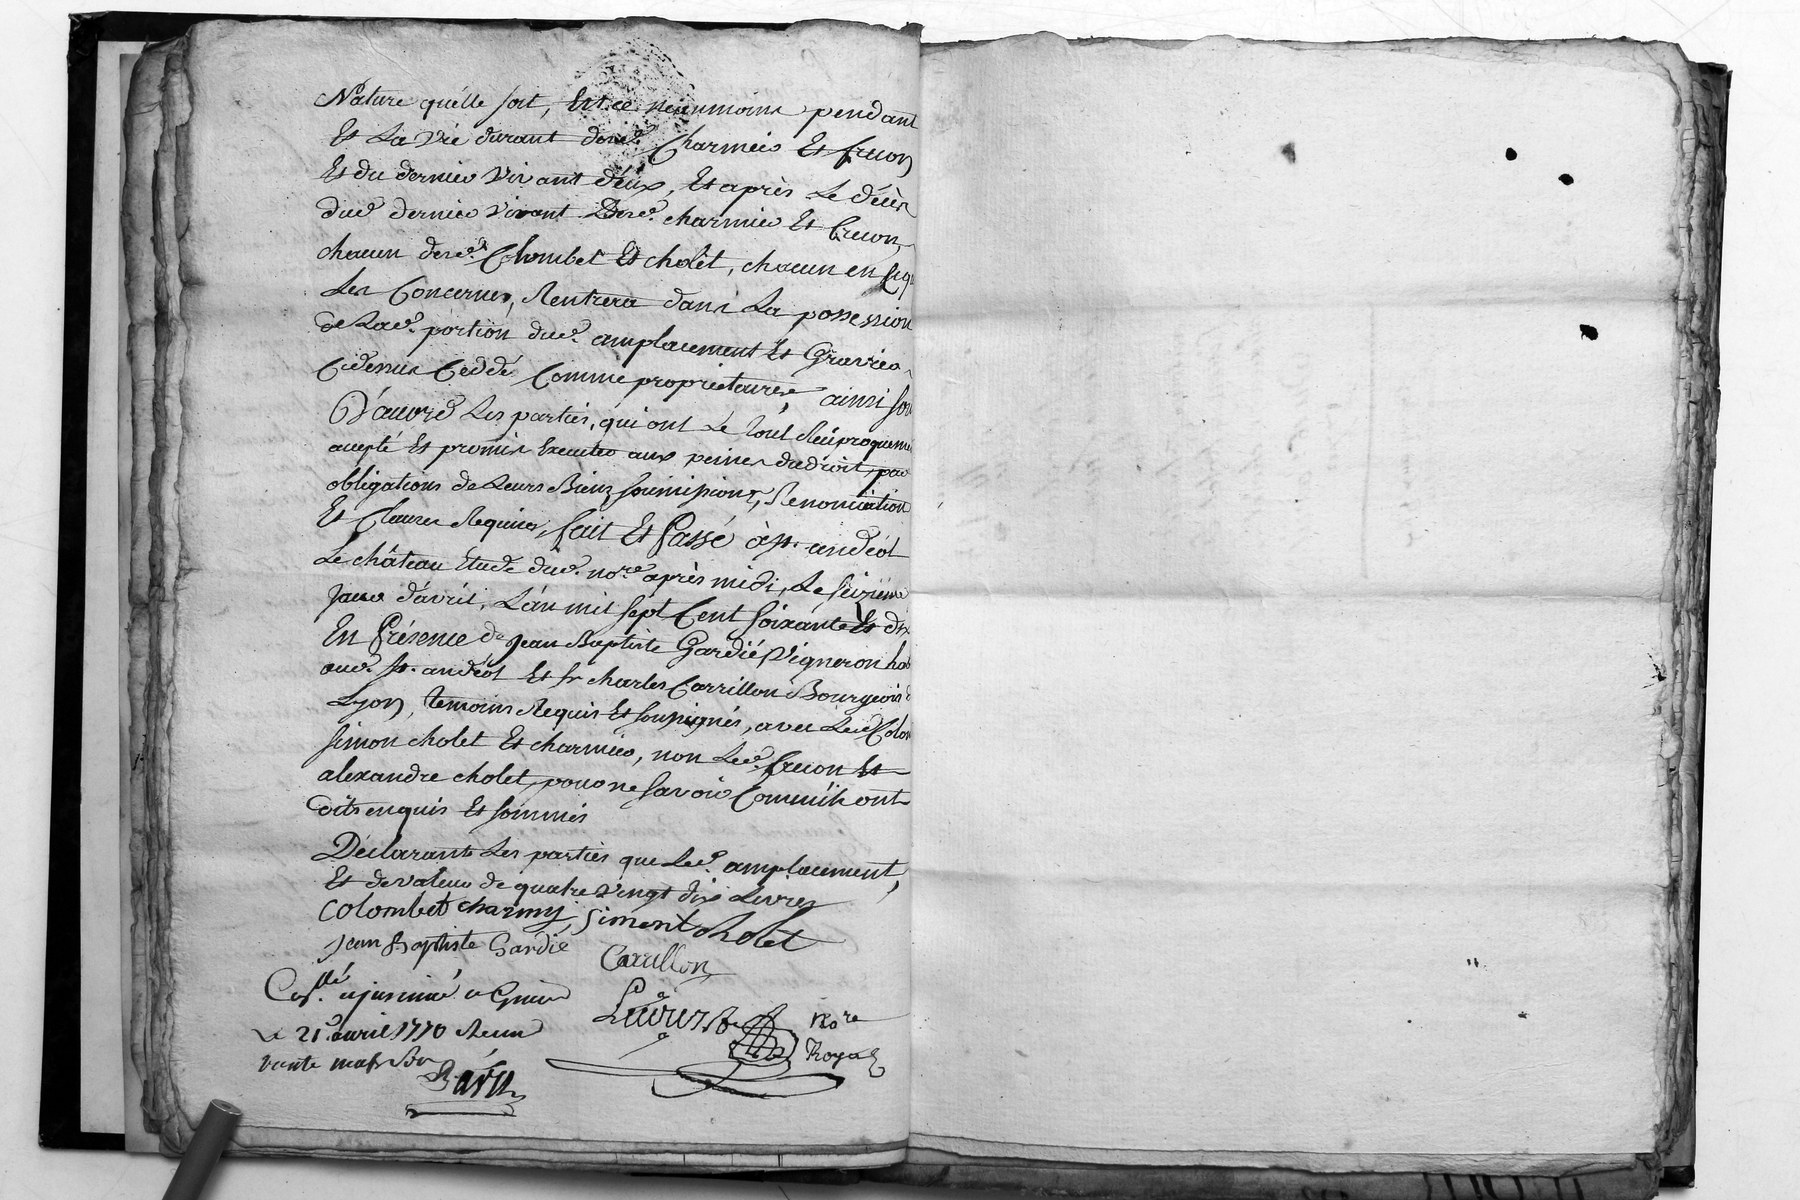 Nature quélle soit, Et ce néenmoins pendant
Et La Vie durant desd. Charmier Et freron
Et du dernier Vivant d'eux, Et après Le décès
dud. dernier vivant Desd. charmier Et freron,
chacun desd. Colombet Et cholét, chacun en ce qui
Les Concerne, Rentrera dans La possession
de Lad. portion dud. amplacement Et Gravier
Cidessus Ceddé Comme proprietaires, ainsi sont
D'accord Les parties, qui ont Le tout Réciproquement
accepté Et promis Executer aux peines du droit, par
obligations de Leurs Biens soumissions, Renonciation
Et Clauses Requises, fait Et Passé à st. andéol
Le château Etude dud. nore. après midi, Le seizième
Jour d'avril, L'an mil sept Cent soixante Et dix
En Présence de Jean Baptiste Gardié Vigneron hab
aud. st. andéol Et sr charles Carrillon Bourgeois de
Lyon, temoins Requis Et soussignés, avec Led. Colom
simon cholet Et charmier, non Led. freron Et
alexandre cholet, pour ne savoir Comm'ils ont
dits enquis Et sommés
Déclarants Les parties que Led. amplacement,
Et de valeur de quatre vingt dix Livres
Colombet charmy, siment cholet
Jean Baptiste Gardie
Carrillon
Nore
Royal
Conllé
Le 21. avril 1770